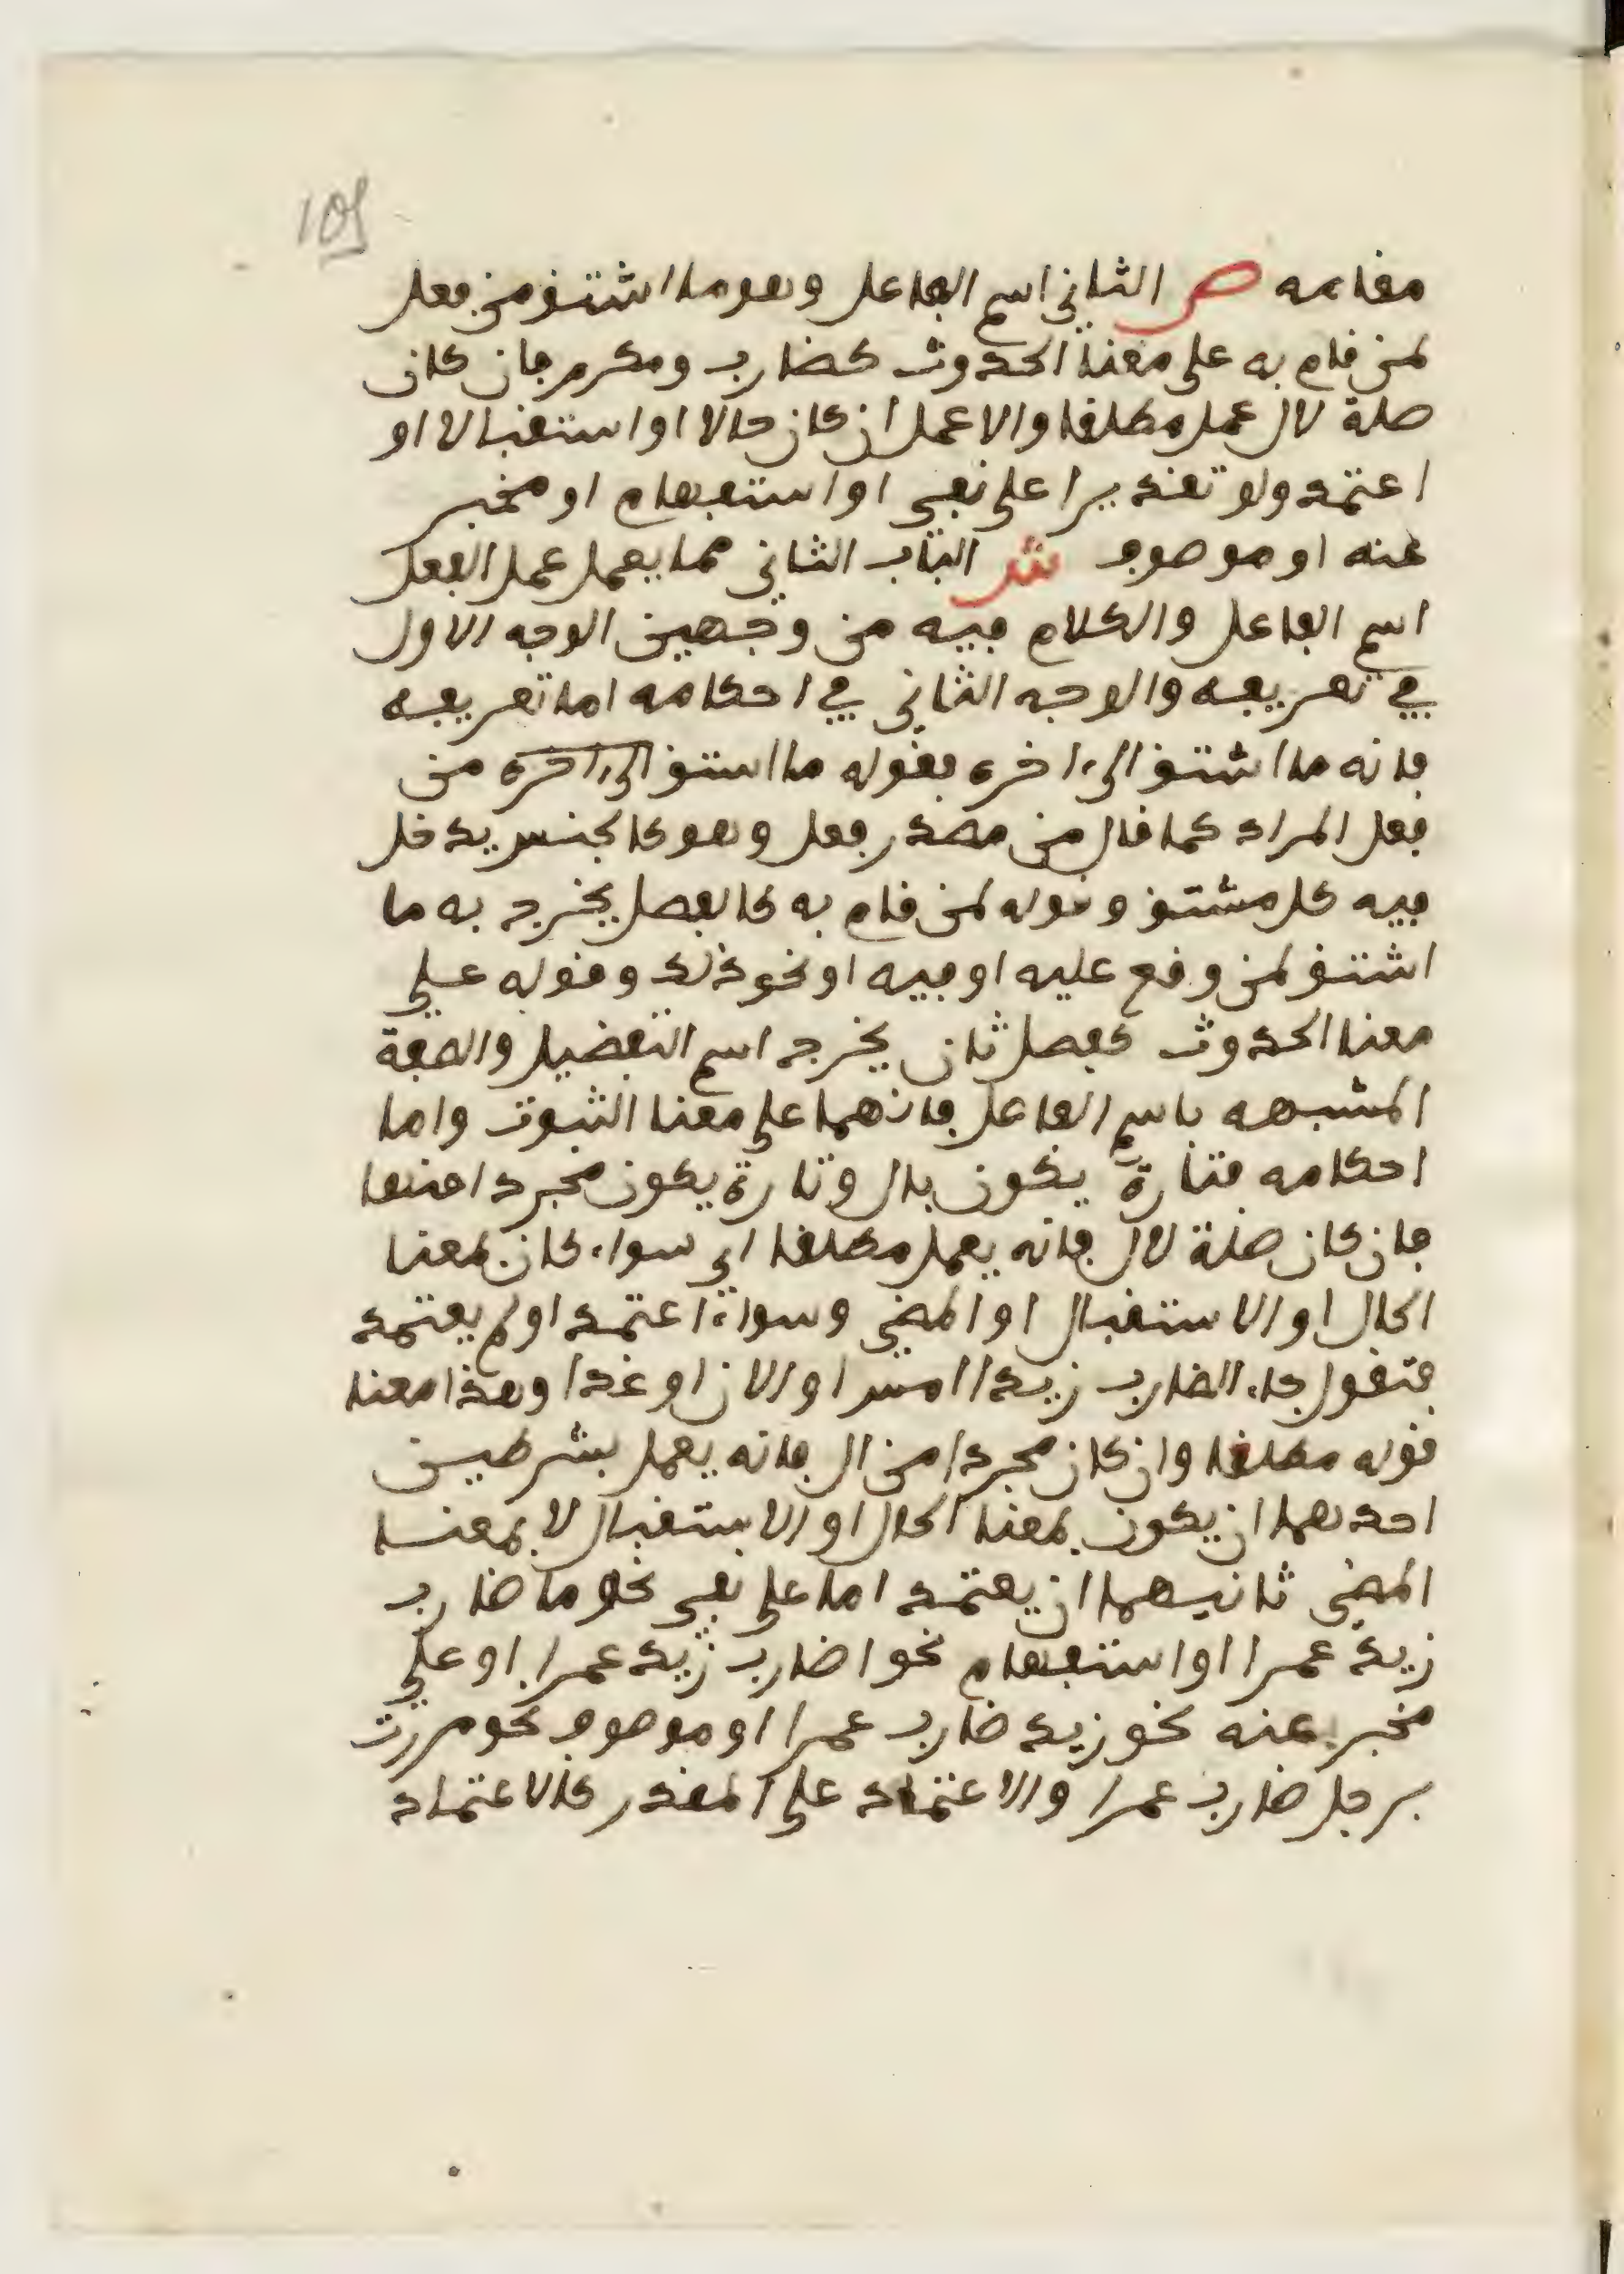 105
مقامه ص الثاني اسم الفاعل وهو ما اشتق من فعل
لمن قام به على معنا الحدوث كضارب ومكرم فان كان
صلة لال عمل مطلقا والا عمل ان كان حالا او استقبالا او
اعتمد ولو تقديرا على نفي او استفهام او مخبر
عنه او موصوف ش الباب الثاني مما يعمل عمل الفعل
اسم الفاعل والكلام فيه من وجهين الوجه الاول
في تعريفه والوجه الثاني في احكامه اما تعريفه
فانه ما اشتق الى اخره فقوله ما استق الى اخره من
فعل المراد كما قال من مصدر فعل وهو كالجنس يدخل
فيه كل مشتق وقوله لمن قام به كالفصل يخرج به ما
اشتق لمن وقع عليه او فيه او نحو ذلك وقوله على
معنا الحدوث كفصل ثان يخرج اسم التفضيل والصفة
المشبهه باسم الفاعل فانهما على معنا الثبوت واما
احكامه فتارة يكون بال وتارة يكون مجردا منها
فان كان صلة لال فانه يعمل مطلقا اي سواء كان بمعنا
الحال او الاستقبال او المضي وسواء اعتمد او لم يعتمد
فتقول جاء الضارب زيدا امس او الان او غدا وهذا معنا
قوله مطلقا وان كان مجردا من ال فانه يعمل بشرطين
احدهما ان يكون بمعنا الحال او الاستقبال لا بمعنا
المضي ثانيهما ان يعتمد اما على نفي نحو ما ضارب
زيد عمرا او استفهام نحو اضارب زيد عمرا او على
مخبر عنه نحو زيد ضارب عمرا او موصوف نحو مررت
برجل ضارب عمرا والاعتماد على المقدر كالاعتماد